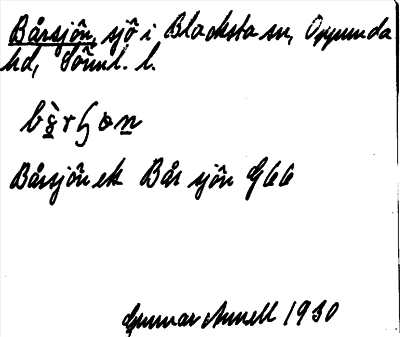 Bårsjön, sjö i Blacksta sn, Oppunda
hd, Södml. l.
Bårsjön ek Bår sjön G66
Gunnar Annell 1930